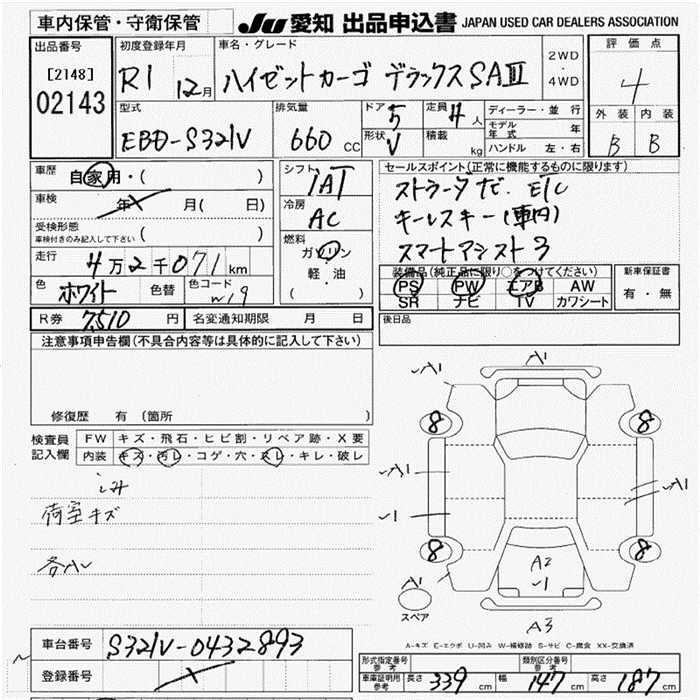 車内保管・守衛保管 JU 愛知 出品申込書 JAPAN USED CAR DEALERS ASSOCIATION
出品番号
[2148]
02143
初度登録年月
R1 12月
車名・グレード
ハイゼットカーゴ デラックスSAIII
2WD
・
4WD
評価点
4
型式
EBD-S321V
排気量
660 CC
ドア 5
形状 V
定員 4人
積載 kg
ディーラー・並行
モデル年式 年
ハンドル 左・右
外装 内装
B B
車歴 自家用・( )
車検 年 月( 日)
受検形態
車検付きのみ記入して下さい ( )
走行 4万2千071km
色 ホワイト 色替 色コード W19
シフト
IAT
冷房
AC
燃料
ガソリン
軽・油
( )
セールスポイント(正常に機能するものに限ります)
ストラーダナビ. ETC
キーレスキー(車内)
スマートアシスト3
装備品(純正品に限り○をつけてください)
PS PW エアB AW
SR ナビ TV カワシート
新車保証書
有・無
R券 7,510 円 名変通知期限 月 日
後日品
注意事項申告欄(不具合内容等は具体的に記入して下さい)
修復歴 有 (箇所 )
検査員
記入欄
FW キズ・飛石・ヒビ割・リペア跡・X要
内装 キズ・汚レ・コゲ・穴・スレ・キレ・破レ
シミ
荷室キズ
A1
A1
8 8
A1 A1
1
8 8
A2
1
A1
スペア
A3
A-キズ E-エクボ U-凹み W-補修跡 S-サビ C-腐食 XX-交換済
車台番号 S321V-0432893
登録番号
形式指定番号
参考
類別区分番号
参考
車庫証明用
参考
長さ 339 cm 幅 147 cm 高さ 187 cm